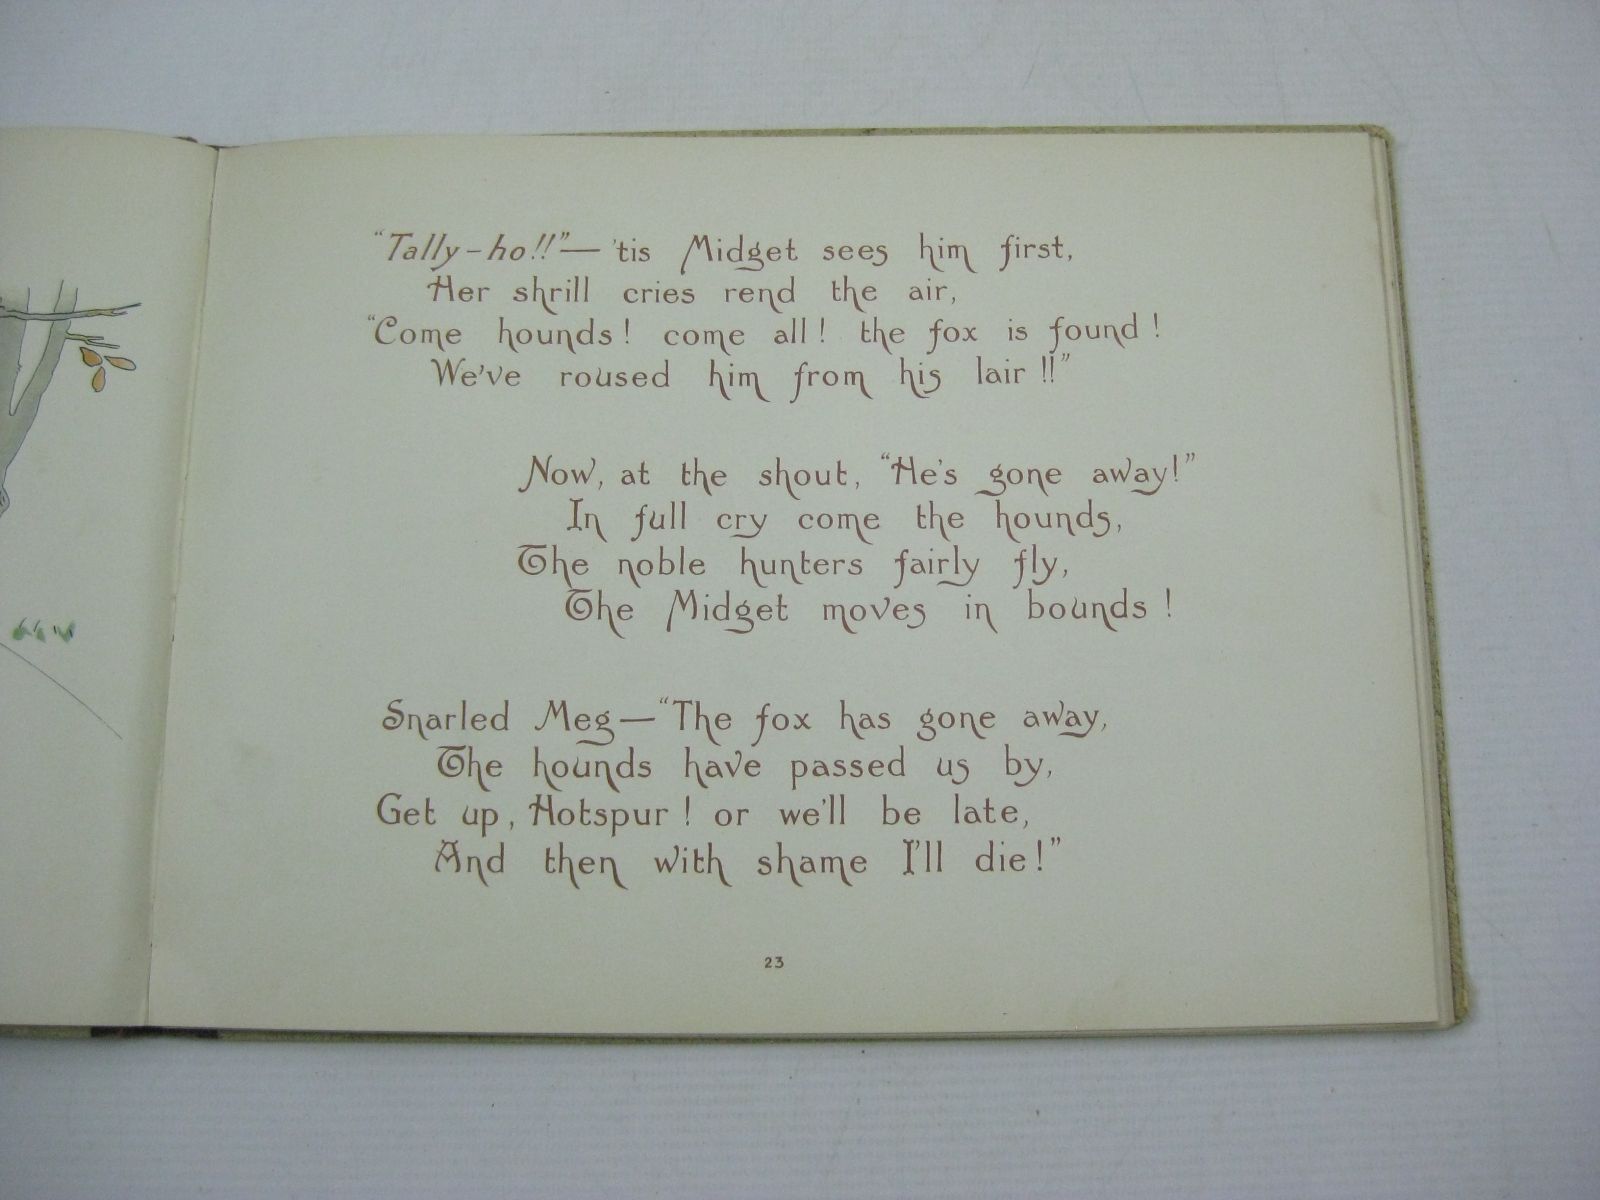 “Tally-ho!!”— 'tis Midget sees him first,
Her shrill cries rend the air,
“Come hounds! come all! the fox is found!
We've roused him from his lair!!”
Now, at the shout, “He's gone away!”
In full cry come the hounds,
The noble hunters fairly fly,
The Midget moves in bounds!
Snarled Meg—“The fox has gone away,
The hounds have passed us by,
Get up, Hotspur! or we'll be late,
And then with shame I'll die!”
23